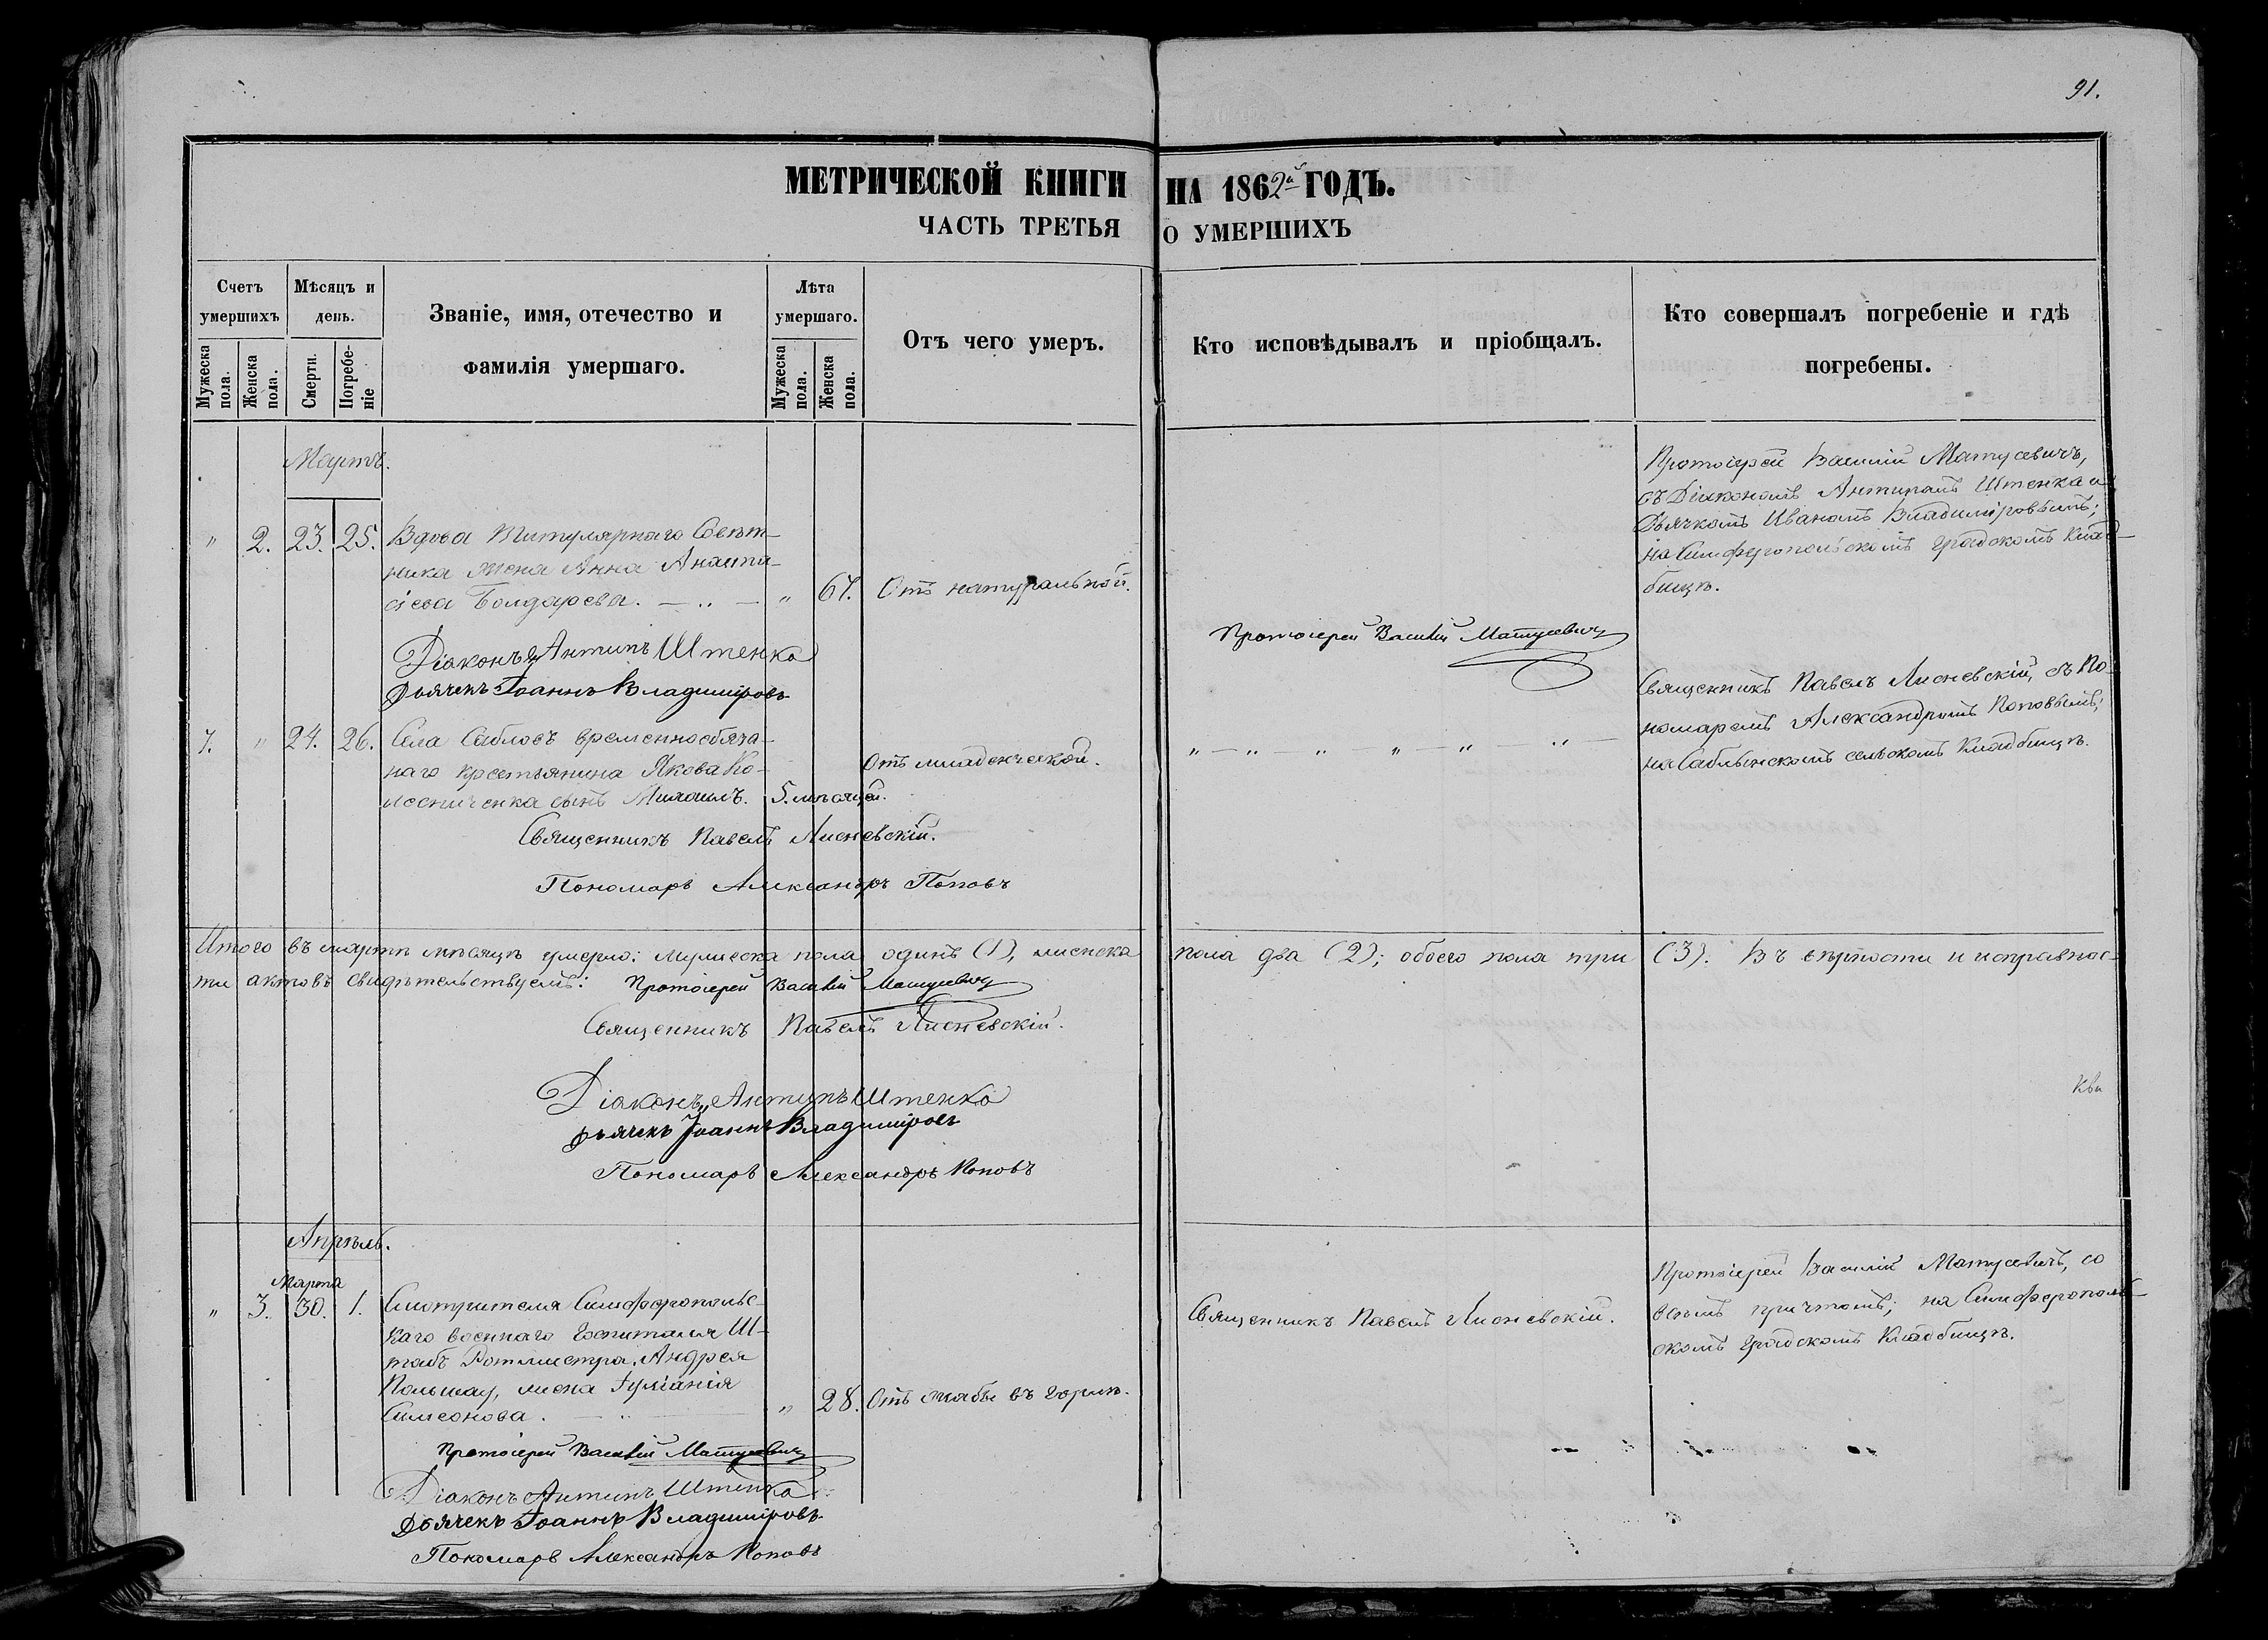 91.
МЕТРИЧЕСКОЙ КНИГИ НА 1862й ГОДЪ.
ЧАСТЬ ТРЕТЬЯ О УМЕРШИХЪ
Счетъ умершихъ
Мужеска пола.
Женска пола.
Мѣсяцъ и день.
Смерти.
Погребеніе
Званіе, имя, отечество и
фамилія умершаго.
Лѣта умершаго.
Мужеска пола.
Женска пола.
Отъ чего умеръ.
Кто исповѣдывалъ и пріобщалъ.
Кто совершалъ погребеніе и гдѣ
погребены.
Мартъ.
" 2. 23. 25. Вдова Титулярнаго Совѣт-
ника жена Анна Анаста-
сіева Болдарева. — " — " 67. Отъ натуральной.
Протоіерей Василій Матусевичъ
Протоіерей Василій Матусевичъ,
съ Діакономъ Антипомъ Штенка и
Дьячкомъ Иваномъ Владиміровымъ;
на Симферопольскомъ градскомъ клад-
бищѣ.
Діаконъ Антипъ Штенко
Дьячекъ Іоаннъ Владиміровъ
7. " 24. 26. Села Сабловъ временнообяза-
наго крестьянина Якова Ко-
лесниченка сынъ Михаилъ. 5. мѣсяцей.
Отъ младенческой.
" — " — " " — " — " —
Священникъ Павелъ Лисневскій, съ По-
номаремъ Александромъ Поповымъ;
на Саблынскомъ сельскомъ кладбищѣ.
Священникъ Павелъ Лисневскій.
Пономарь Александръ Поповъ
Итого въ мартѣ мѣсяцѣ умерло: мужеска пола одинъ (1), женска пола два (2); обоего пола три (3). Въ вѣрности и исправнос-
ти актовъ свидѣтельствуемъ: Протоіерей Василій Матусевичъ
Священникъ Павелъ Лисневскій.
Діаконъ Антипъ Штенко
Дьячекъ Іоаннъ Владиміровъ
Пономарь Александръ Поповъ
Апрѣль.
Марта
" 3. 30. 1. Смотрителя Симферопольс-
каго военнаго госпиталя Ш-
табъ Ротмистра Андрея
жена Іуліанія
Симеонова. — " — " 28. Отъ жабы въ горлѣ.
Священникъ Павелъ Лисневскій.
Протоіерей Василій Матусевичъ, со
всѣмъ причтомъ; на Симферополь-
скомъ градскомъ кладбищѣ.
Протоіерей Василій Матусевичъ
Діаконъ Антипъ Штенко
Дьячекъ Іоаннъ Владиміровъ
Пономарь Александръ Поповъ